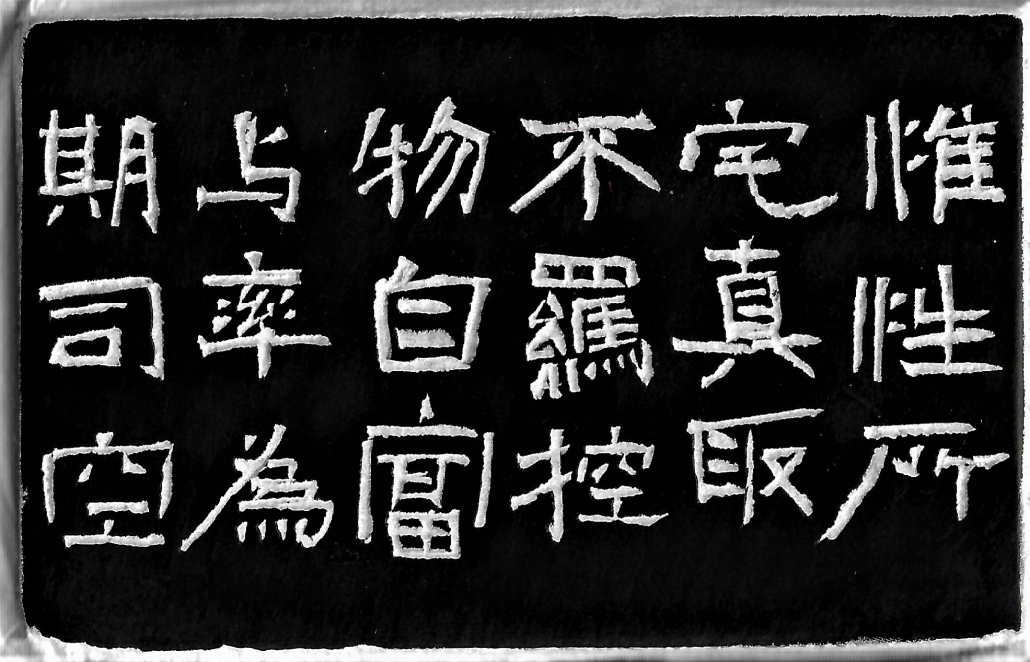 惟性所
宅真取
不羈控
物自富
与率為
期司空